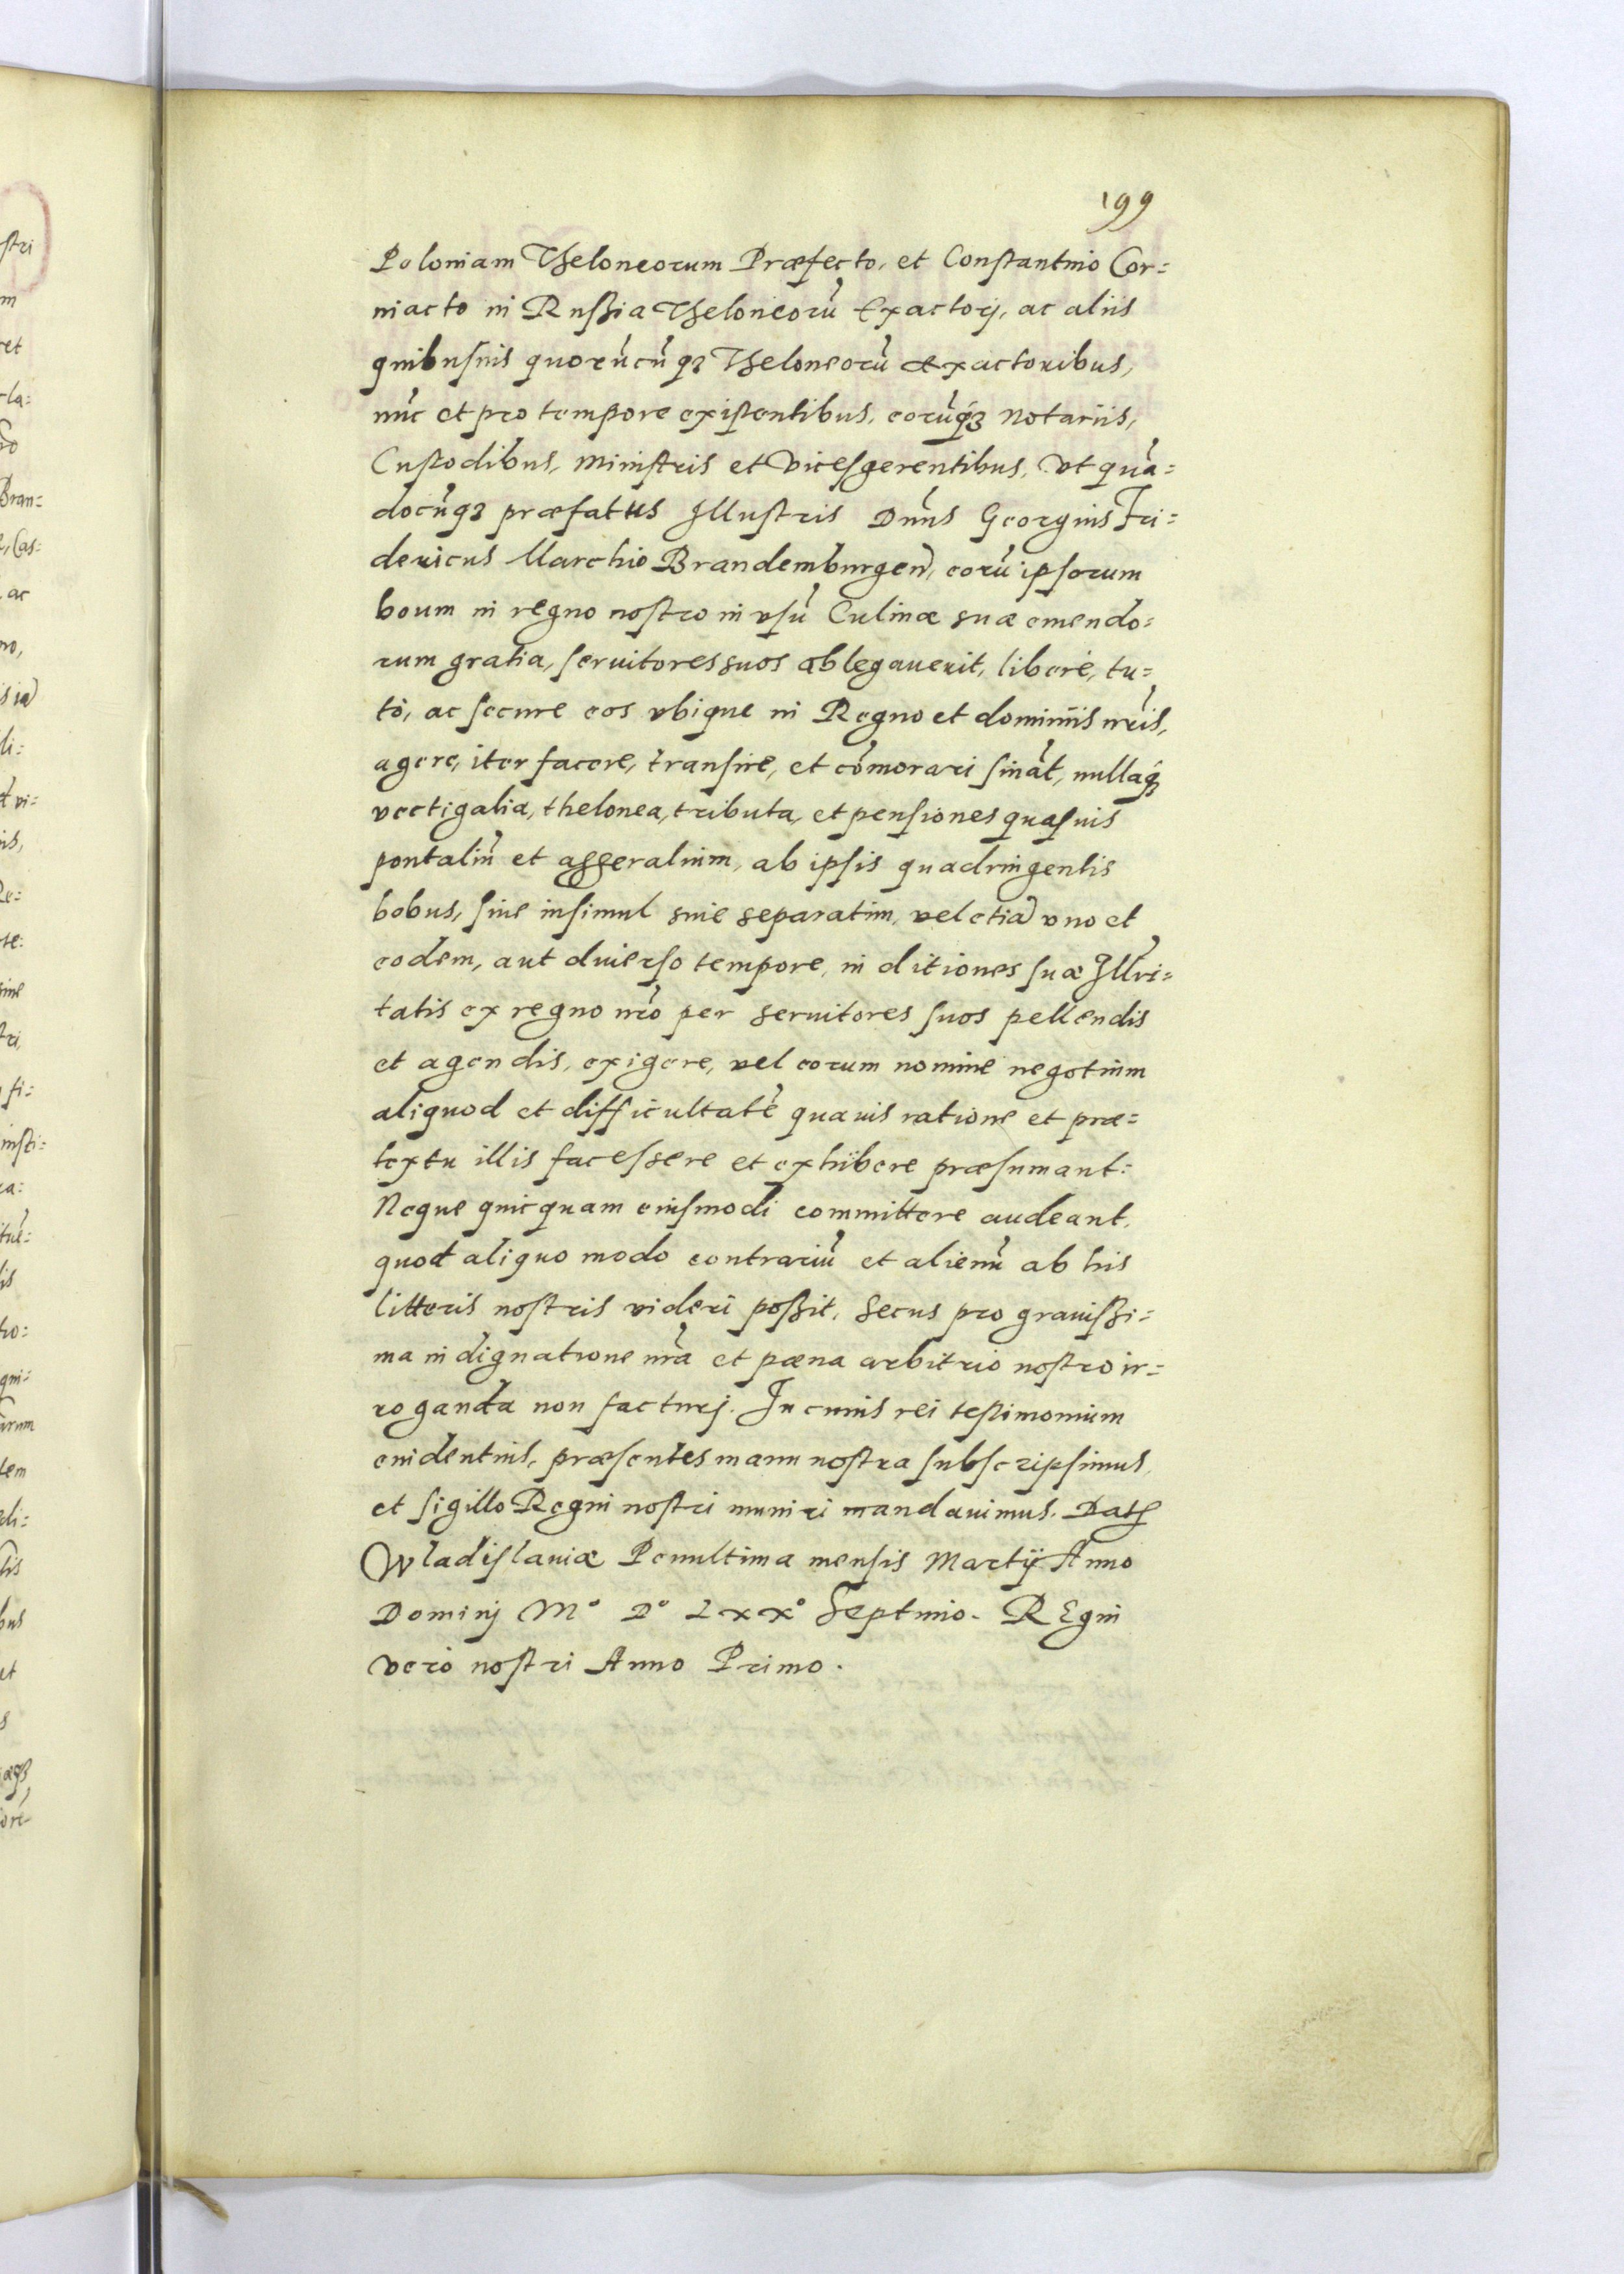 199
Poloniam Theloneorum Præfecto, et Constantino Cor=
niacto in Rußia Theloneorũ Exactorj, ac aliis
quibusuis quorũcũqз Theloneorũ exactoribus,
nũc et pro tempore existentibus, eorũqз Notariis,
Custodibus, Ministris et Vicesgerentibus, Vt quã=
docũqз præfatus Illustris Dñns Georgius Fri=
dericus Marchio Brandemburgeñ, eorũ ipsorum
boum in regno nostro in vsũ Culinæ suæ emendo=
rum gratia, seruitores suos ablegauerit, liberè, tu=
tò, ac secure eos vbique in Regno et dominiis nr̃is,
agere, iter facere, transire, et cõmorari sinãt, nullaqз
vectigalia, thelonea, tributa, et pensiones quasuis
pontaliũ et aggeralium, ab ipsis quadringentis
bobus, siue insimul siue separatim, vel etiã vno et
eodem, aut diuerso tempore, in ditiones suæ Illri̇̃=
tatis ex regno nr̃o per seruitores suos pellendis
et agendis, exigere, vel eorum nomine negotium
aliquod et difficultatẽ quauis ratione et præ=
textu illis facessere et exhibere præsumant:
Neque quicquam eiusmodi committere audeant,
quod aliquo modo contrariũ et alienũ ab his
litteris nostris videri poßit, Secus pro grauißi=
ma indignatione nr̃a et pæna arbitrio nostro ir=
roganda non facturj. In cuius rei testimonium
euidentius, præsentes manu nostra subscripsimus,
et sigillo Regni nostri muniri mandauimus. Datꝭ
Wladislauiæ Penultima mensis Martij Anno
Dominj M° D° Lxx° Septimo. REgni
vero nostri Anno Primo.